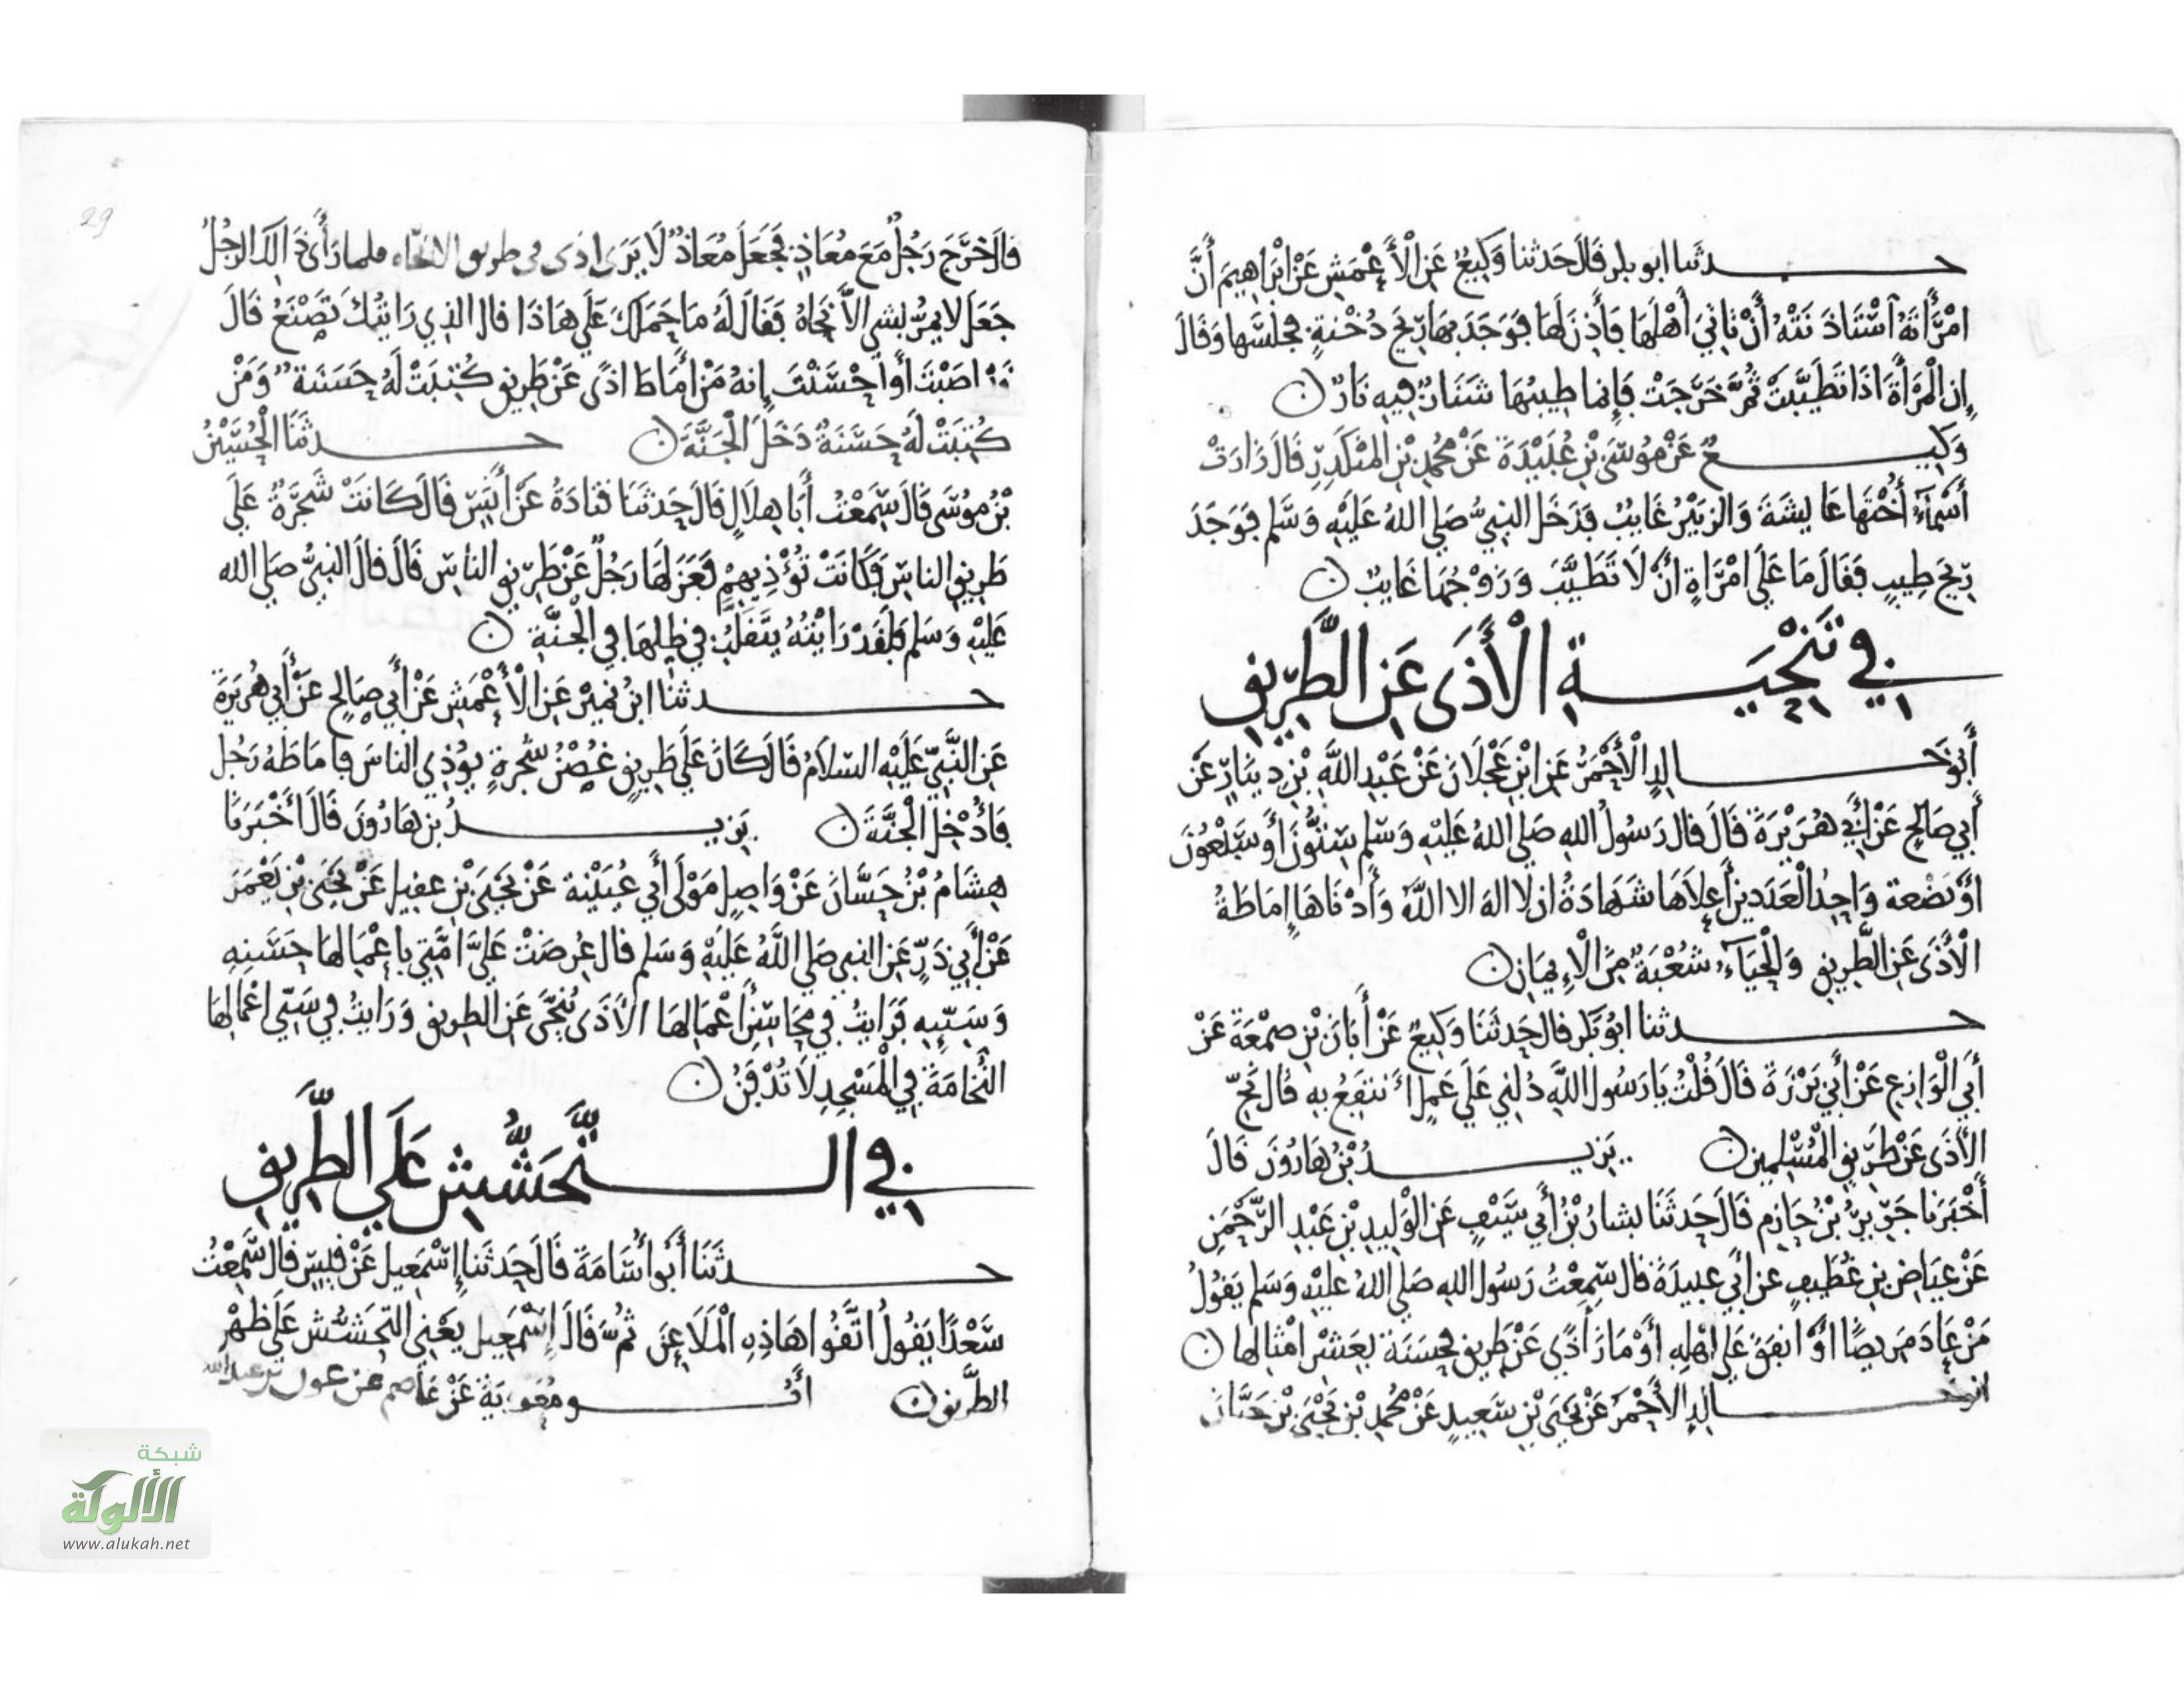 حدثنا ابو بكر قال حدثنا وَكِيعٌ عَنِ الْأَعْمَشِ عَنْ إِبْرَاهِيمَ أَنَّ
امْرَأَتَهُ اسْتَاذَنَتْهُ أَنْ تَاتِيَ أَهْلَهَا فَأَذِنَ لَهَا فَوَجَدَ بِهَا رِيحَ دُخْنَةٍ فحبسها وَقَالَ
إِن الْمَرْأَةَ اذَا تَطَيَّبَتْ ثُمَّ خَرَجَتْ فَإِنما طِيبُهَا شَنَارٌ فِيهِ نَارٌ
وَكِيعٌ عَنْ مُوسَى بْنِ عُبَيْدَةَ عَنْ مُحَمد بْنِ الْمُنْكَدِرِ قَالَ زَارَتْ
أَسْمَآءُ أُخْتَهَا عَايِشَةَ وَالزبَيْرُ غَايِبٌ فَدَخَلَ النبِيُّ صَلى اللهُ عَلَيْهِ وَسَلم فَوَجَدَ
رِيحَ طِيبٍ فَقَالَ مَا عَلَى امْرَاةٍ أَنْ لَا تَطَيَّبَ وَزَوْجُهَا غَايِبٌ
فِي تَنْحِيَةِ الْأَذَى عَنِ الطَّرِيقِ
أَبُو خَالِدٍ الْأَحْمَرُ عَنِ ابْنِ عَجْلَانَ عَنْ عَبْدِ اللَّهِ بْنِ دِينَارٍ عَنْ
أَبِي صَالِحٍ عَنْ أَبِي هُرَيْرَةَ قَالَ قال رَسُولُ اللهِ صَلى اللهُ عَلَيْهِ وَسَلم سِتُّونَ أَو سَبْعُونَ
اوْ بَضْعة وَاحِدُ الْعَدَدين أَعلاهَا شَهَادَةُ ان لَا اله الا اللَّه وَأَدْنَاهَا إِمَاطَةُ
الْأَذَى عَنِ الطَّرِيقِ وَالْحَيَآءُ شُعْبَةٌ مِنَ الْإِيمَانِ
حدثنا ابُو بَكر قال حَدثَنَا وَكِيعٌ عَنْ أَبَانَ بْنِ صَمْعَةَ عَنْ
أَبِي الْوَازِعِ عَنْ أَبِي بَرْزَةَ قَالَ قُلْتُ يَا رَسُولَ اللَّهِ دُلنِي عَلَى عَمَلٍ أَنتَفِعُ بِهِ قال نَحِّ
الْأَذَى عَنْ طَرِيقِ الْمُسْلِمِينَ يَزِيدُ بْنُ هَارُونَ قَالَ
أَخْبَرَنا جَرِيرُ بْنُ حَازِم قَالَ حَدثَنَا بشارُ بْنُ أَبِي سَيْفٍ عَنِ الْوَلِيدِ بْنِ عَبْدِ الرَّحْمَنِ
عَنْ عِيَاضِ بن غُطَيفٍ عن أَبِي عبيدَةَ قال سَمِعْتُ رَسُولَ اللهِ صَلى اللهُ عليْهِ وَسَلم يَقُولُ
مَنْ عَادَ مَرِيضًا أَوْ انفَقَ عَلَى اهْلِهِ أَوْ مَازَ أَذًى عَنْ طَرِيقٍ فحَسَنَة بِعَشْرِ امْثَالِهَا
أبو خالد الأَحْمَرُ عَنْ يَحْيَى بْنِ سَعِيدٍ عَنْ مُحَمد بْنِ يَحْيَى بْنِ حَبَّانَ
29
قال خَرَجَ رَجُلٌ مَعَ مُعَاذٍ فَجَعَلَ مُعَاذٌ لَا يَرَى اذَى فى طريق الا نحّاه فلما رَأَى ذَالِكَ الرجُلُ
جَعَلَ لا يمُرُّ بشي الَّا نَحَّاهُ فَقَالَ لَهُ مَا حَمَلَكَ عَلَى هَاذَا قال الذِي رَايتُكَ تَصْنَعُ قَالَ
قَدْ اصَبْتَ أَو احْسَنْتَ إِنهُ مَنْ أَمَاطَ اذًى عَنْ طَرِيقٍ كُتِبَتْ لَهُ حَسَنَة وَمَنْ
كُتِبَتْ لَهُ حَسَنَةٌ دَخَلَ الْجَنَّةَ حدثَنَا الْحُسَيْنُ
بْنُ مُوسَى قَالَ سَمِعْتُ أَبَا هِلَالٍ قَالَ حَدثَنَا قتَادَةُ عَنْ أَنَسٍ قَالَ كَانَتْ شَجَرَةٌ عَلَى
طَرِيقِ الناسِ فَكَانَتْ تُؤْذِيهِمْ فَعَزَلَهَا رَجُلٌ عَنْ طَرِيقِ الناسِ قَالَ قالَ النبِيُّ صَلى الله
عَلَيْهِ وَسَلم فَلَقَدْ رَايْتُهُ يتَقَلَّبُ فِي ظِلهَا فِي الْجنَّةِ
حدثنا ابْنُ نُمَيْرٍ عَنِ الْأَعْمَشِ عَنْ أَبِي صَالِحٍ عَنْ أَبِي هُرَيْرَةَ
عَنِ النَّبِيِّ عَلَيْهِ السلَامُ قَالَ كَانَ عَلَى طَرِيقٍ غُصْنُ شَجرةٍ يوُذِي الناسَ فَأمَاطَهُ رَجُل
فَأُدْخِلَ الْجَنَّةَ يَزيدُ بن هَارُونَ قَالَ أَخْبَرَنَا
هِشَامُ بْنُ حَسَّانَ عَنْ وَاصِلٍ مَوْلَى أَبِي عُيَيْنة عَنْ يَحْيَى بْنِ عقيل عَنْ يَحْيَى بْنِ يَعْمَرَ
عَنْ أَبِي ذَرٍّ عَنِ النبِي صَلى اللَّهُ عَلَيْهِ وَسَلم قال عُرِضَتْ عَلَيَّ أمَّتِي بِأعْمَالِهَا حَسَنِهِ
وَسَيِّيهِ فَرَايتُ فِي مَحَاسِنِ أَعْمَالِهَا الْأَذَى يُنَحَّى عَنِ الطريق وَرَايتُ فِي سَيِّي اعْمَالِهَا
النُّخَامَةَ فِي الْمَسْجِدِ لَا تُدْفَنُ
فِي التَّحَشُّشِ عَلَى الطَّرِيقِ
حدثَنَا أَبُو أُسَامَةَ قَالَ حَدثَنَا إِسْمَعِيل عَنْ قيسٍ قَال سَمِعْتُ
سَعْدًا يَقُولُ اتَّقُوا هَاذِهِ الْمَلَاعِنَ ثمَّ قَالَ إِسْمَعِيل يَعْنِي التَّحَشُّش عَلَى ظَهْرِ
الطَّرِيقِ أَبُو مُعَوِيَة عَنْ عَاصم عن عون بن عبد الله
شبكة
الألوكة
www.alukah.net